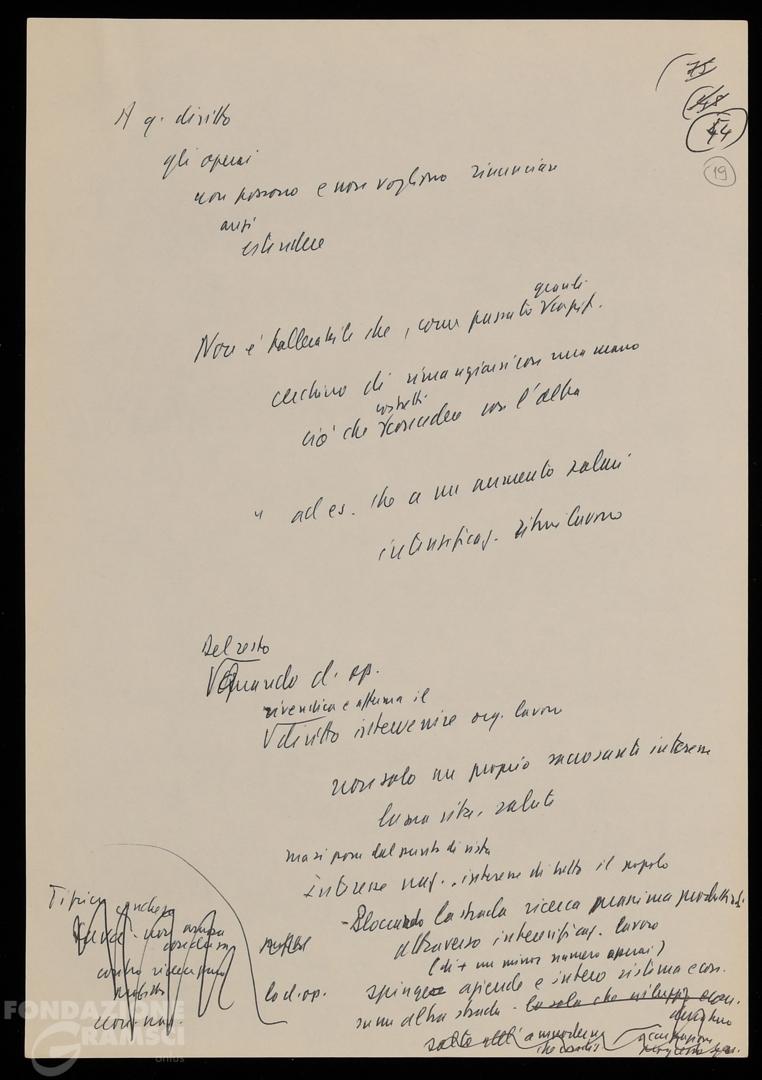 75
44
19
A q. diritto
gli operai
non possono e non vogliono rinunciare
anzi
estendere
quanti
Non è tollerabile che, come passato capit.
cerchino di rimangiarsi con una mano
costretti
ciò che concedere con l'altra
" ad es. che a un aumento salari
intensificaz. ritmi lavoro
Del resto
Quando cl. op.
rivendica e afferma il
diritto intervenire org. lavoro
non solo un proprio sacrosanto interesse
umano vita, salute
ma si pone dal punto di vista
interesse naz., interesse di tutto il popolo
- Bloccando la strada ricerca massima produttività
attraverso intensificaz. lavoro
(di + un minor numero operai)
spinge aziende e intero sistema econ.
su un'altra strada - la sola che sviluppi econ.
Tipica anche
contro
non naz.
la cl. op.
occupazione
FONDAZIONE
GRAMSCI
onlus